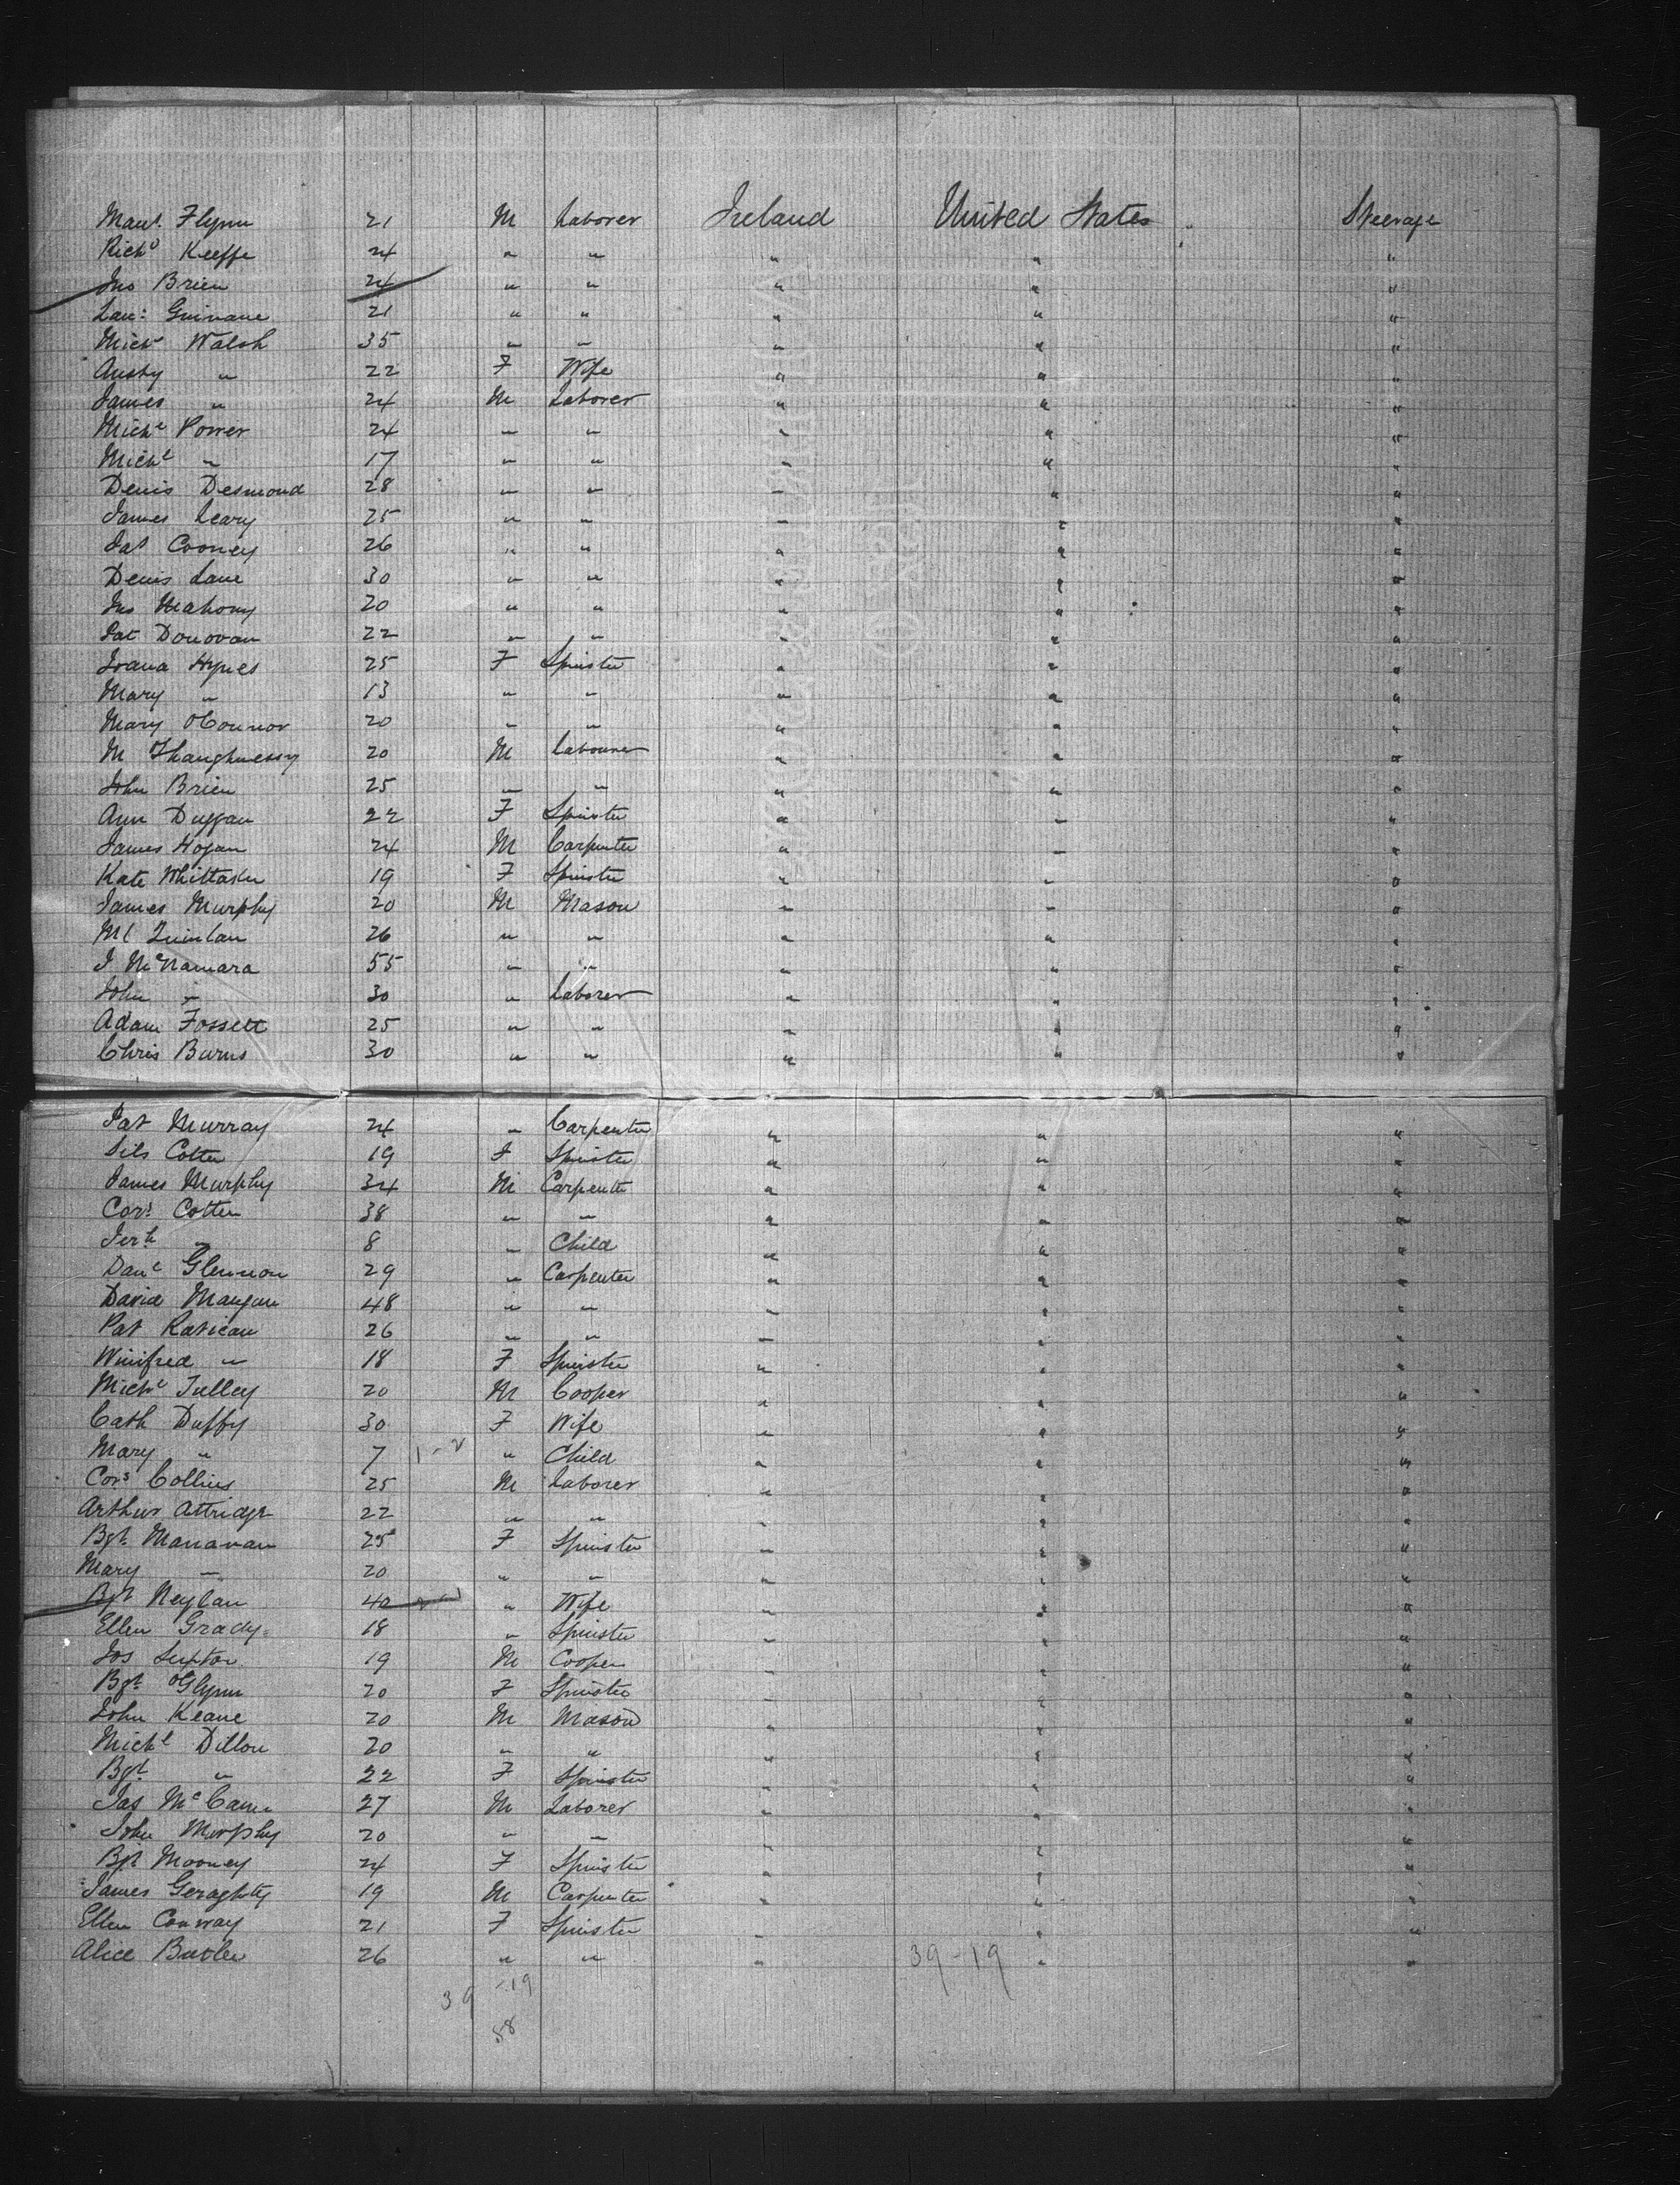 Maut. Flynn 21 M Laborer Ireland United States Steerage
Richd Keeffe 24 " " " " "
Jno Brien 24 " " " " "
Lau: Guinane 21 " " " " "
Michl Walsh 35 " " " " "
Ansty " 22 F Wife " " "
James " 24 M Laborer " " "
Michl Power 24 " " " " "
Michl " 17 " " " " "
Denis Desmond 28 " " " " "
James Leary 25 " " " " "
Pat Cooney 26 " " " " "
Denis Lane 30 " " " " "
Jno Mahony 20 " " " " "
Pat Donovan 22 " " " " "
Joana Hynes 25 F Spinster " " "
Mary " 13 " " " " "
Mary OConnor 20 " " " " "
M Shaughnessy 20 M Labourer " " "
John Brien 25 " " " " "
Ann Duggan 22 F Spinster " " "
James Hogan 24 M Carpenter " " "
Kate Whittaker 19 F Spinster " " "
James Murphy 20 M Mason " " "
Ml Quinlan 26 " " " " "
J McNamara 55 " " " " "
John " 30 " Laborer " " "
Adam Fossett 25 " " " " "
Chris Burns 30 " " " " "
Pat Murray 24 " Carpenter " " "
Cotter 19 F Spinster " " "
James Murphy 34 M Carpenter " " "
Cors Cotter 38 " " " " "
Jerh " 8 " Child " " "
Danl Glennon 29 " Carpenter " " "
David Mangan 48 " " " " "
Pat Ratican 26 " " " " "
Winifred " 18 F Spinster " " "
Michl Tulley 20 M Cooper " " "
Cath Duffy 30 F Wife " " "
Mary " 7 " Child " " "
Cors Collins 25 M Laborer " " "
Arthur Attridge 22 " " " " "
Bgt Manavan 25 F Spinster " " "
Mary " 20 " " " " "
Bgt Neylan 40 " Wife " " "
Ellen Grady 18 " Spinster " " "
Jos Lupton 19 M Cooper " " "
Bgt Glynn 20 F Spinster " " "
John Keane 20 M Mason " " "
Michl Dillon 20 " " " " "
Bgt " 22 F Spinster " " "
Jas McCann 27 M Laborer " " "
John Murphy 20 " " " " "
Bgt Mooney 24 F Spinster " " "
James Geraghty 19 M Carpenter " " "
Ellen Conway 21 F Spinster " " "
Alice Butler 26 " " " 39-19 " "
39 - 19
58